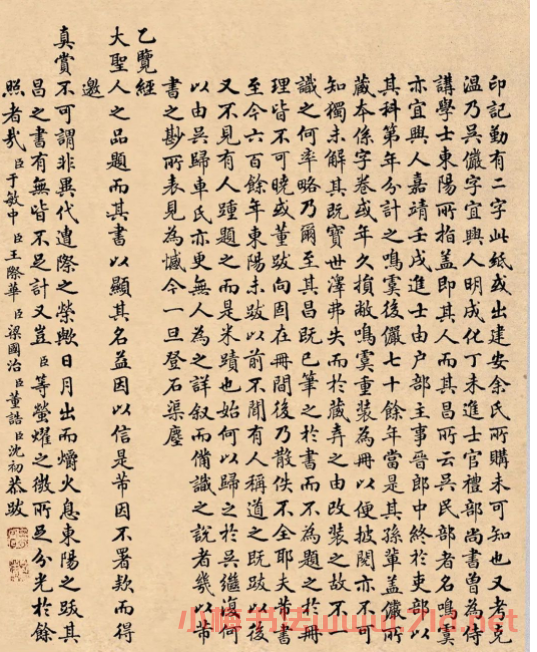 印記勤有二字此紙或出建安余氏所購未可知也又考克
温乃吳儼字宜興人明成化丁未進士官禮部尚書曽為侍
講學士東陽所指盖即其人而其昌所云吳民部者名鳴虞
亦宜興人嘉靖壬戌進士由户部主事晉郎中終於吏部以
其科第年分計之鳴虞後儼七十餘年當是其孫軰盖儼所
蔵本係字卷或年久損敝鳴虞重装為冊以便披閱亦不可
知獨未解其既寳世澤弗失而於藏弆之由改装之故不一
識之何率略乃爾至其昌既已筆之於書而不為題之於冊
理皆不可曉或董跋向固在冊間後乃散佚不全耶夫芾書
至今六百餘年東陽未跋以前不聞有人稱道之既跋以後
又不見有人踵題之而是米蹟也始何以歸之於吳繼復何
以由吳歸車氏亦更無人為之詳叙而備識之說者幾以芾
書之尠所表見為憾今一旦登石渠塵
乙覽經
大聖人之品題而其書以顯其名益因以信是芾因不署款而得
邀
真賞不可謂非異代遭際之榮歟日月出而爝火息東陽之跋其
昌之書有無皆不足計又豈臣等螢耀之微所足分光於餘
照者㢤臣于敏中臣王際華臣梁國治臣董誥臣沈初恭跋